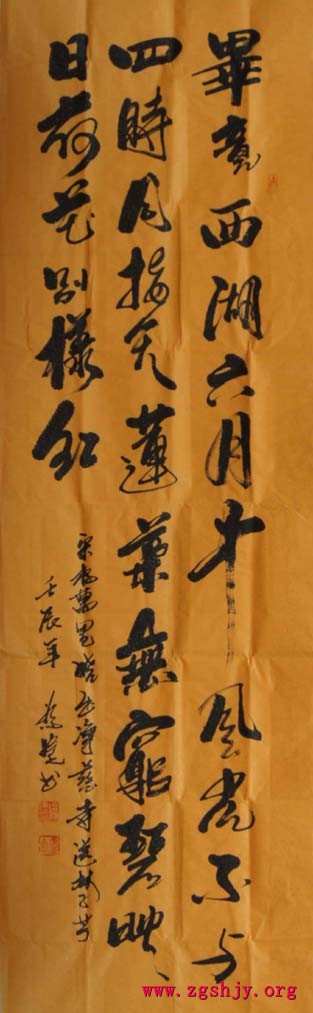 畢竟西湖六月中風光不与
四時同接天蓮葉無窮碧映、
日荷花別樣紅
宋楊萬里曉出淨慈寺送林子方
壬辰年 書
www.zgshjy.org